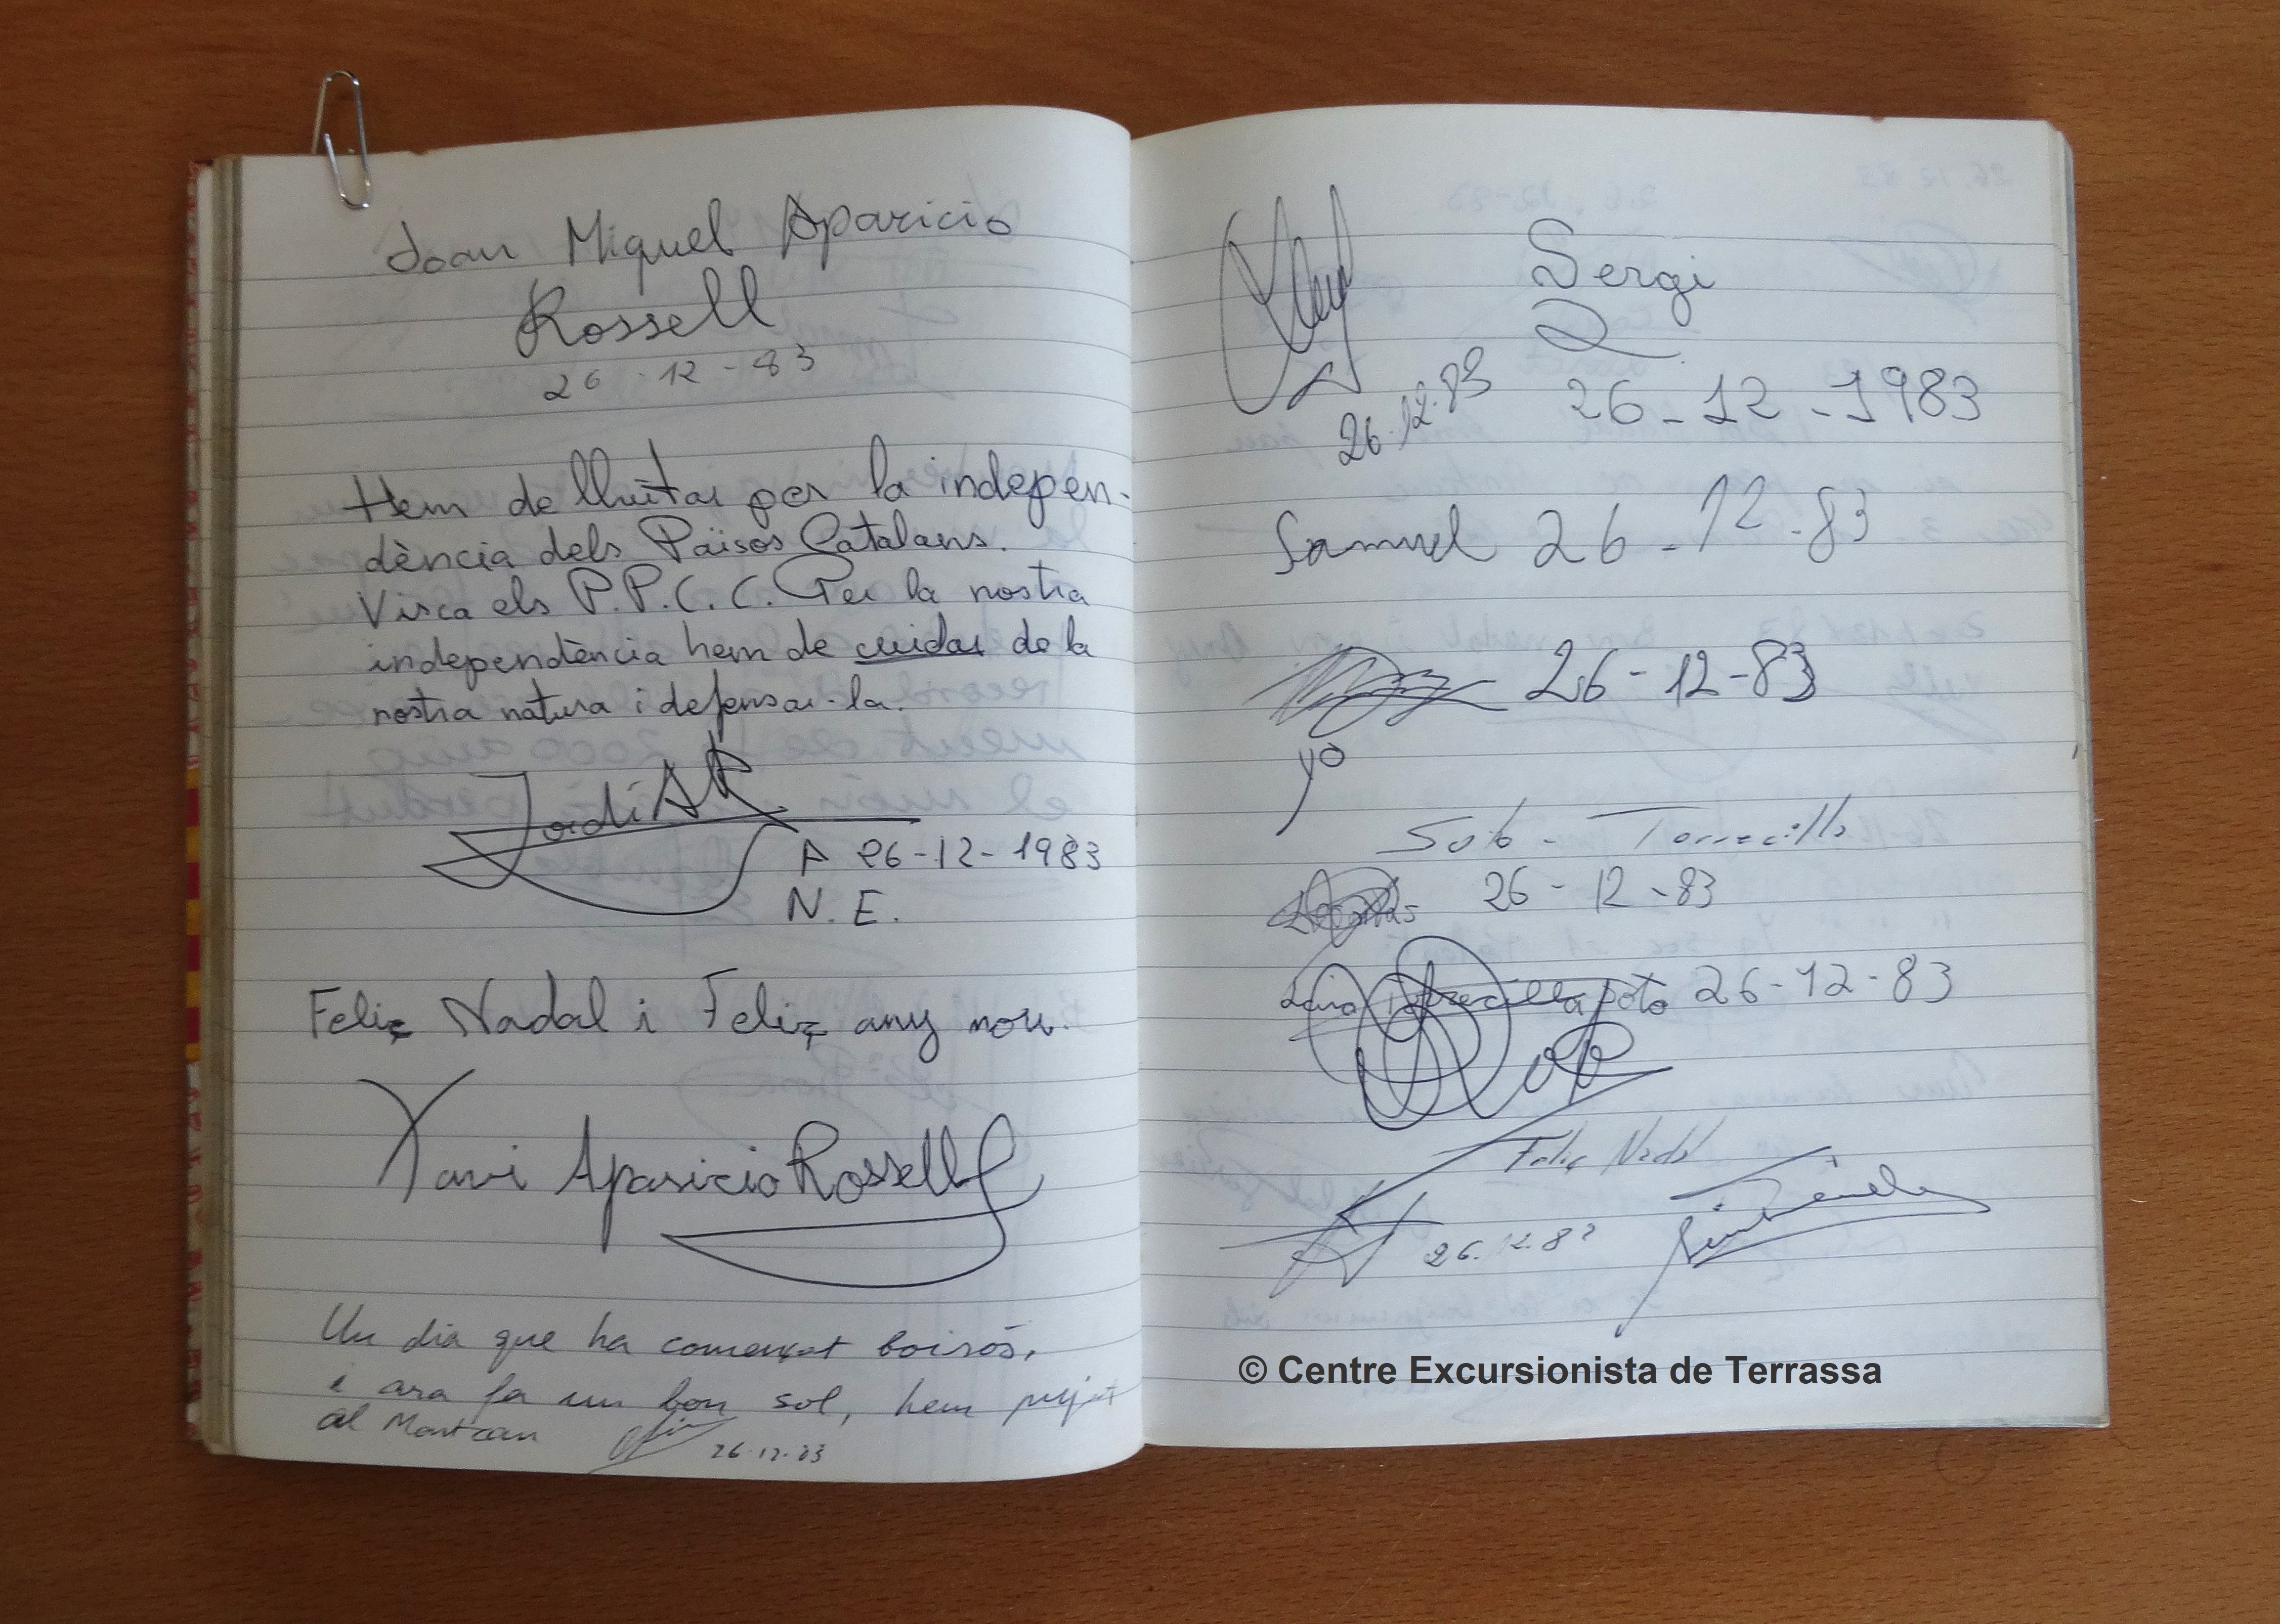 Joan Miquel Aparicio
Rossell
26-12-83
Hem de lluitar per la indepen-
dència dels Països Catalans.
Visca els P.P.C.C. Per la nostra
independència hem de cuidar de la
nostra natura i defensar-la.
Jordi AR
A 26-12-1983
N.E.
Feliç Nadal i Feliç any nou.
Xavi Aparicio Rossell
Un dia que ha començat boirós,
i ara fa un bon sol, hem pujat
al Montcau
26-12-83
26.12.83
Sergi
26-12-1983
Samuel 26-12-83
26-12-83
yo
Soto - Torrecilla
26-12-83
Torrecilla Soto 26-12-83
Feliç Nadal
26.12.83
© Centre Excursionista de Terrassa